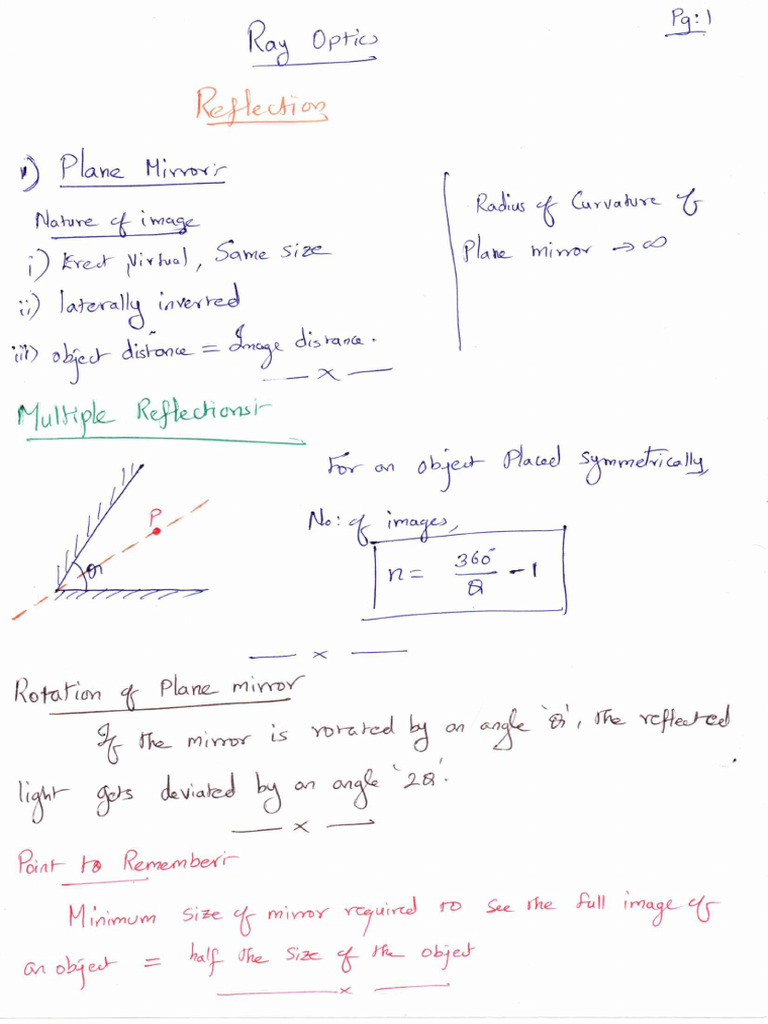 Pg:1
Ray Optics
Reflection
1) Plane Mirror:-
Nature of image
i) Erect, Virtual, Same size
ii) laterally inverted
iii) object distance = Image distance.
— x —
Radius of Curvature of
Plane mirror → ∞
Multiple Reflections:-
P
θ
For an object Placed symmetrically,
No: of images,
n = 360°/θ - 1
— x —
Rotation of Plane mirror
If the mirror is rotated by an angle 'θ', the reflected
light gets deviated by an angle '2θ'.
— x —
Point to Remember:-
Minimum size of mirror required to see the full image of
an object = half the size of the object
— x —